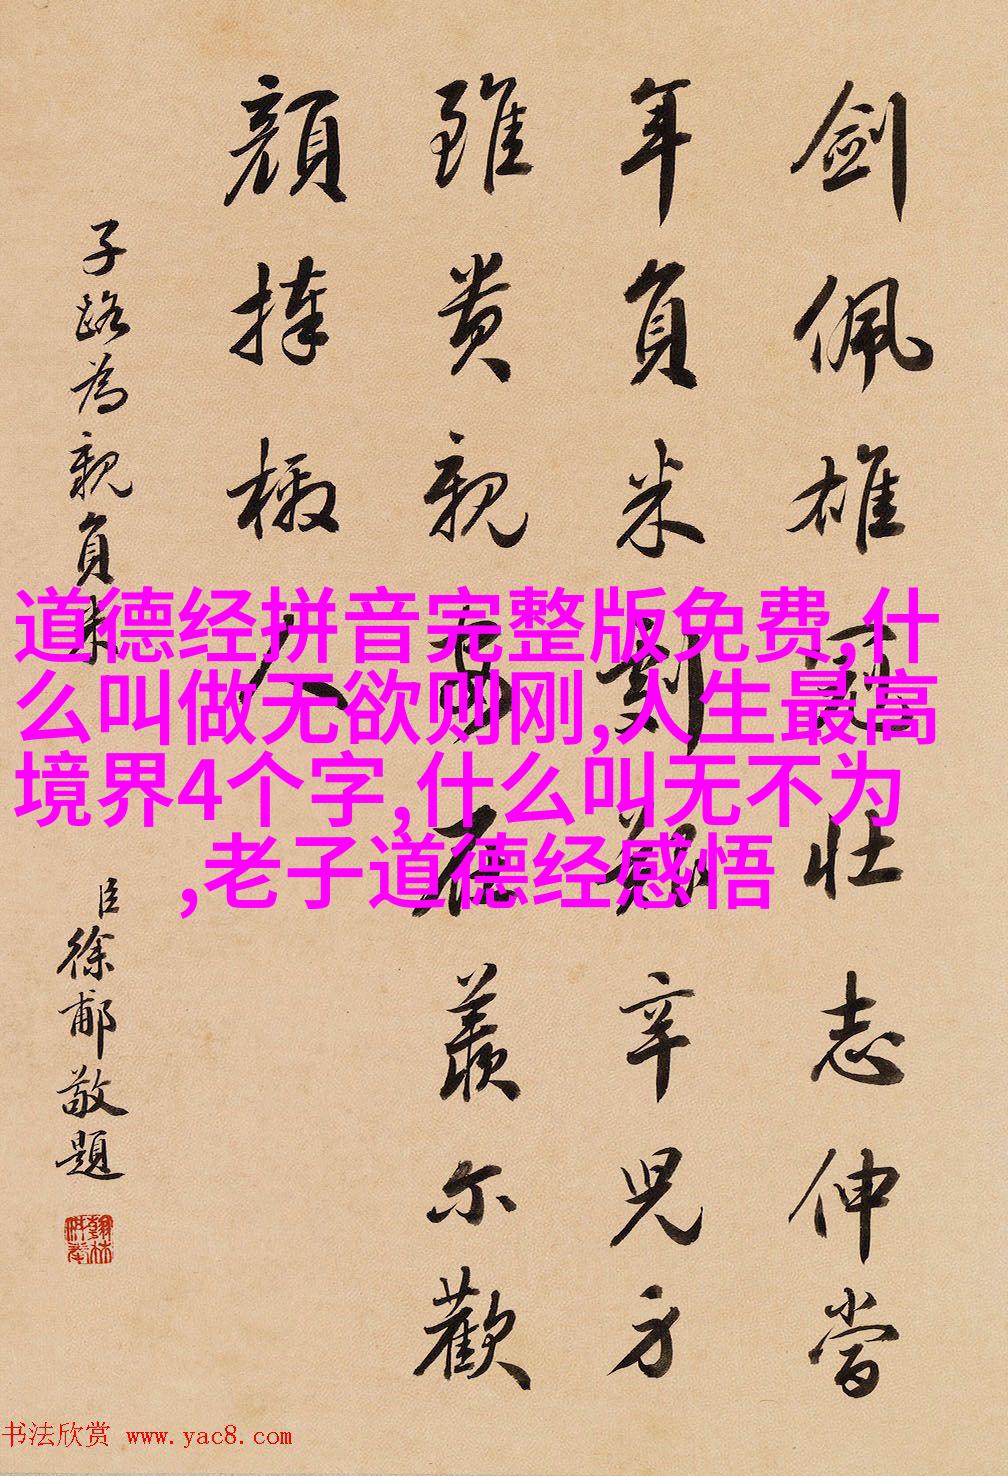 劍佩雄冠壯志伸當
年負米艱辛兒方
雖貴親羨尔歡
顏捧檄人
子路為親負米
臣徐郙敬題
道德经拼音完整版免费,什
么叫做无欲则刚,人生最高
境界4个字,什么叫无不为
,老子道德经感悟
书法欣赏 www.yac8.com